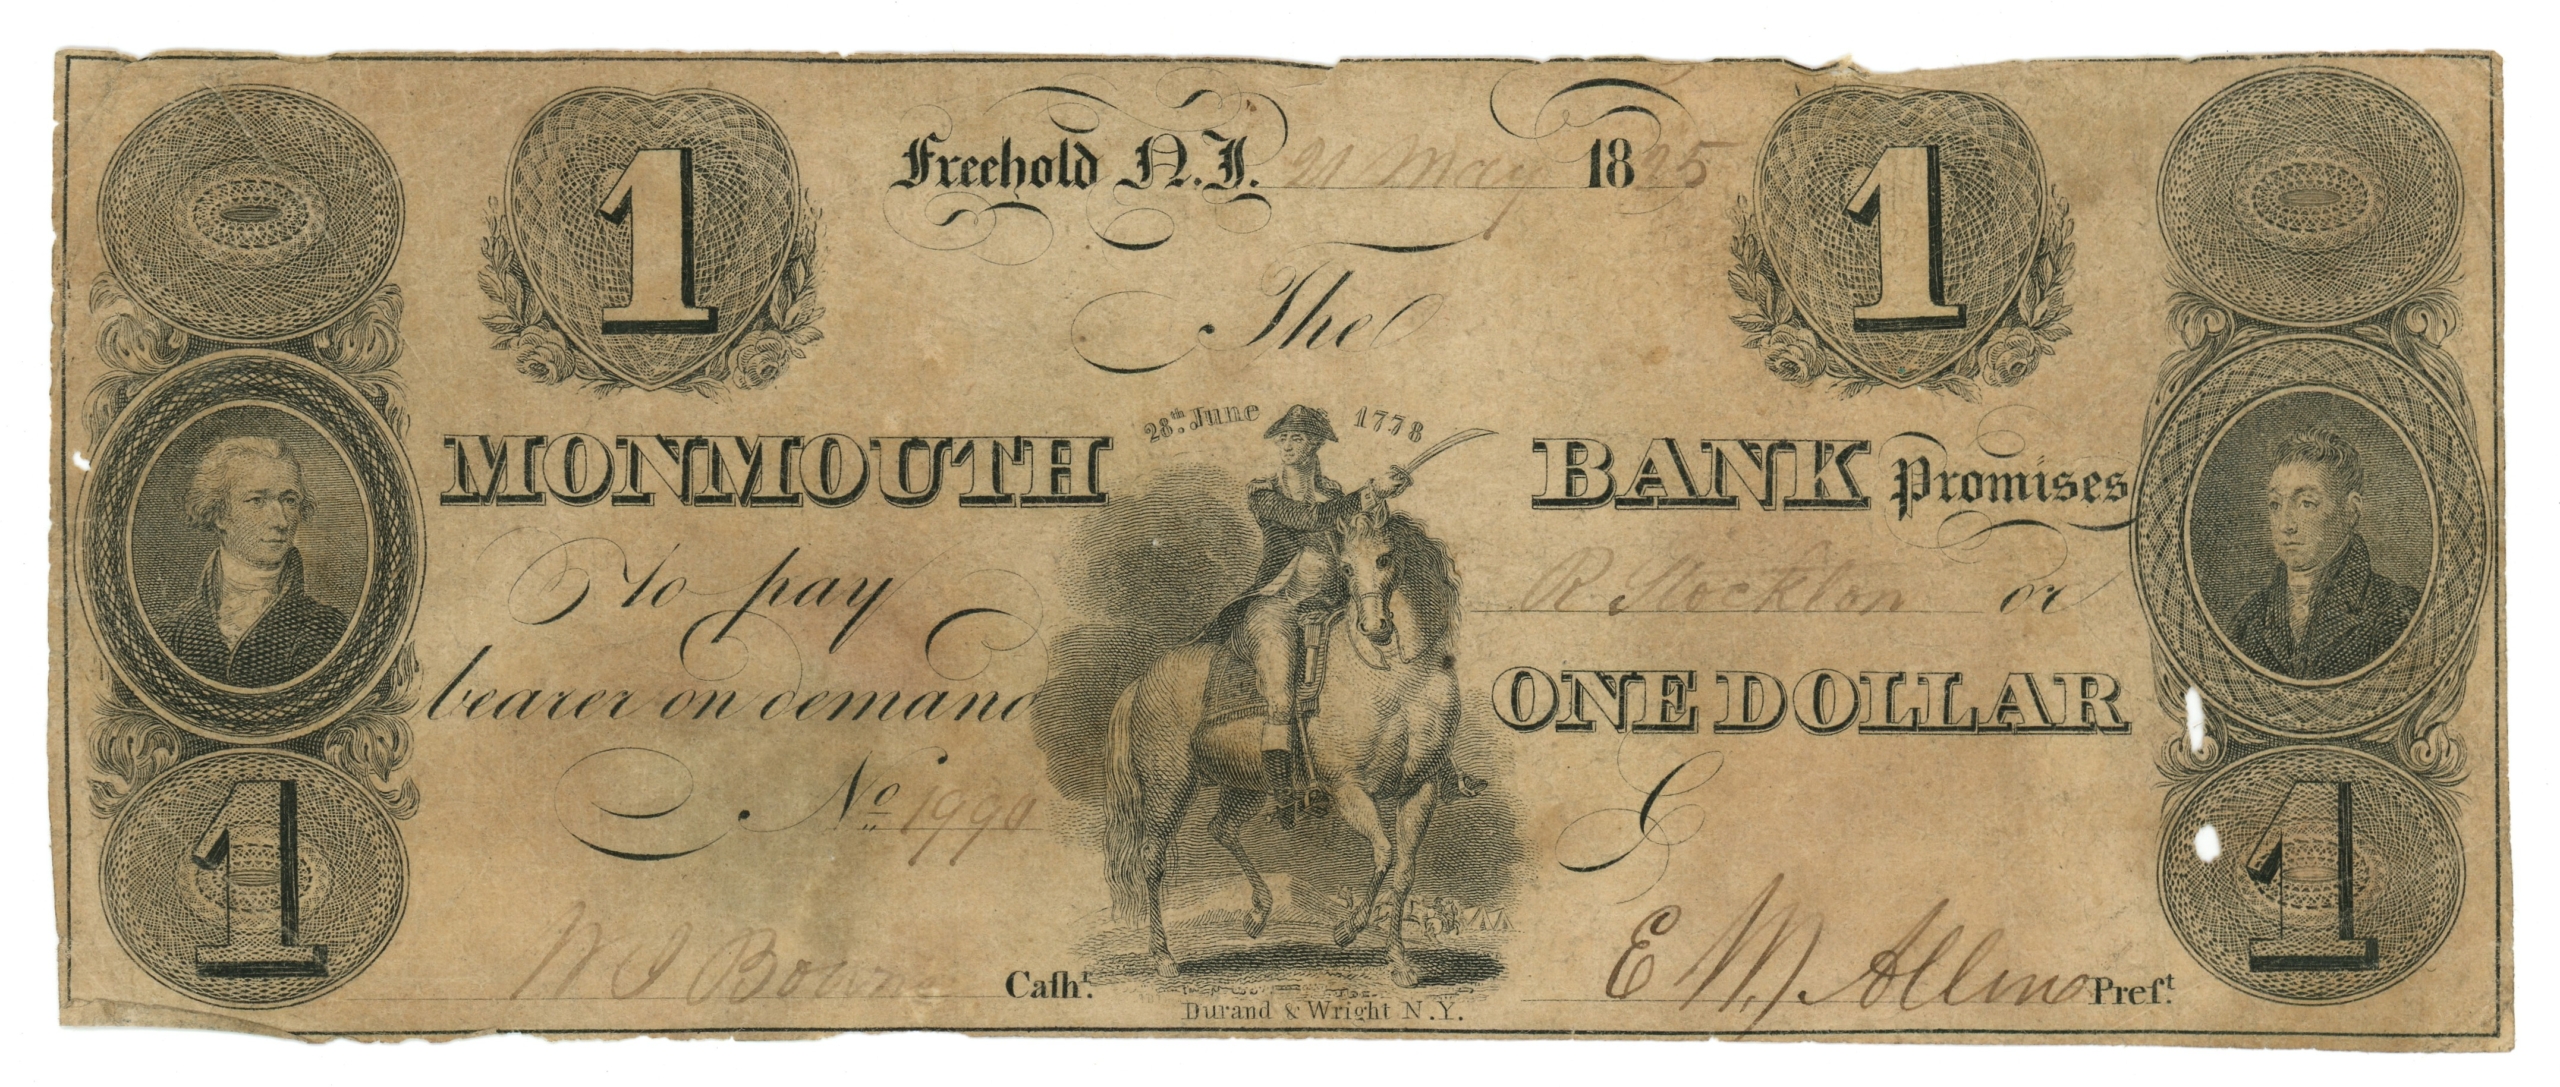 1 Freehold N.J. 21 May 1825 1
The
28th. June 1778
MONMOUTH BANK Promises
To pay R. Stockton or
bearer on demand ONE DOLLAR
No 1990
1 1
Caſhr. E W Allen Preſt.
Durand & Wright N.Y.